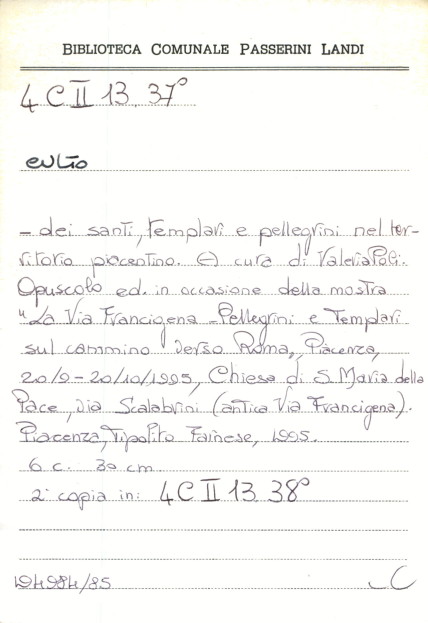 BIBLIOTECA COMUNALE PASSERINI LANDI
4 C II 13.37°
CULTO
- dei santi, templari e pellegrini nel ter-
ritorio piacentino. A cura di Valeria Poli.
Opuscolo ed. in occasione della mostra
"La Via Francigena - Pellegrini e Templari
sul cammino verso Roma, Piacenza,
20/9 - 20/10/1995, Chiesa di S. Maria della
Pace, via Scalabrini (antica Via Francigena).
Piacenza, Tipolito Farnese, 1995.
6 c. 30 cm.
2ª copia in: 4 C II 13.38°
194984/85